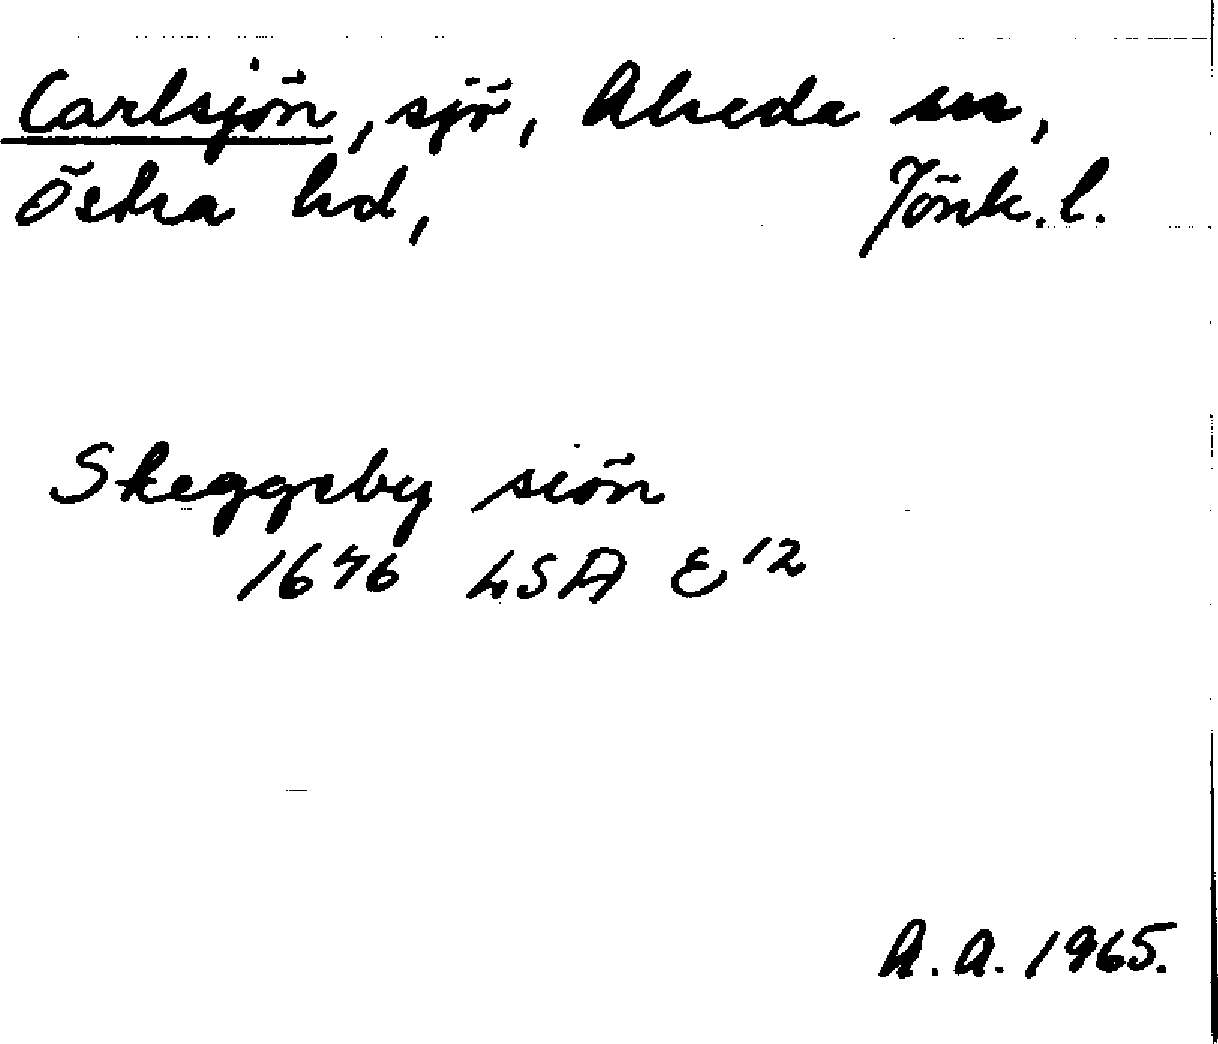 Carlsjön, sjö, Alseda sn,
Östra hd, Jönk. l.
Skeggeby siön
1676 LSA E 12
A. A. 1965.